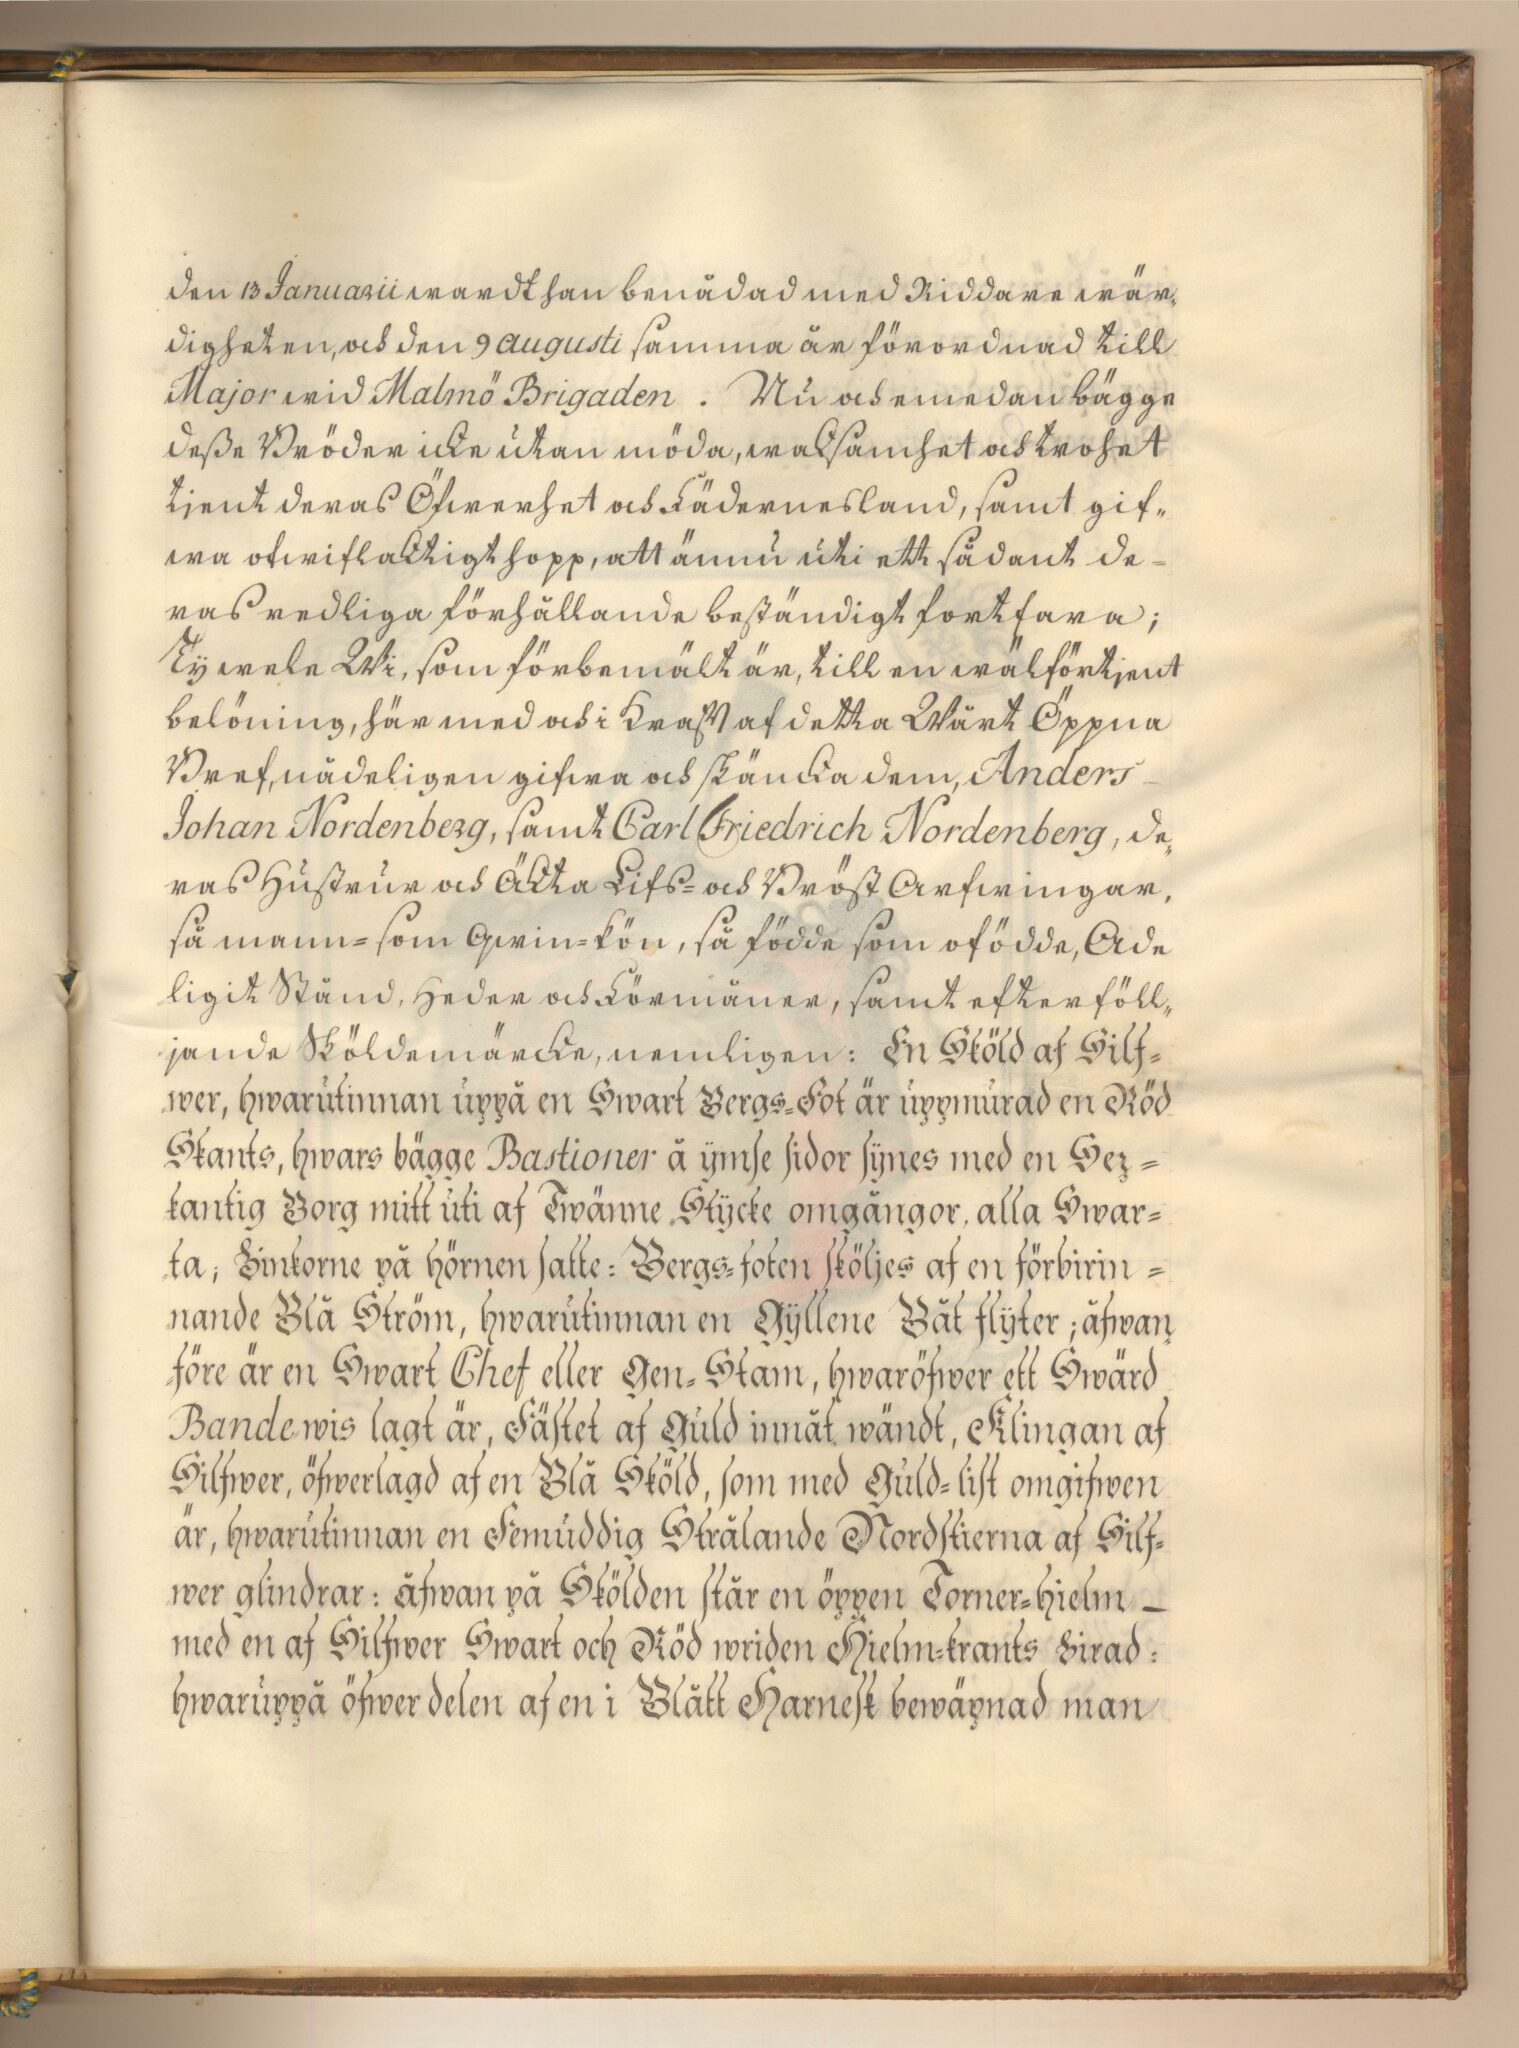 den 13 Januarii wardt han benådad med Riddare wär-
digheten, och den 9 augusti samma år förordnad till
Major wid Malmö Brigaden. Nu och emedan bägge
deße Bröder icke utan möda, wacksamhet och trohet
tjent deras Öfwerhet och Fädernesland, samt gif-
wa otwiflacktigt hopp, att ännu uti ett sådant de-
ras redliga förhållande beständigt fortfara;
Ty wele Wi, som förbemält är, till en wälförtjent
belöning, här med och i Krafft af detta Wårt Öppna
Bref, nådeligen gifwa och skäncka dem, Anders
Johan Nordenberg, samt Carl Friedrich Nordenberg, de-
ras Hustrur och Äckta Lifs- och Bröst Arfwingar,
så mann- som Qwin-kön, så födde som ofödde, Ade
ligit Stånd, Heder och Förmåner, samt efterföll-
jande Sköldemärcke, nemligen: En Sköld af Silf-
wer, hwarutinnan uppå en Swart Bergs-Fot är uppmurad en Röd
Skants, hwars bägge Bastioner å ÿmse sidor sÿnes med en Sex-
kantig Borg mitt uti af Twänne Stÿcke omgångor, alla Swar-
ta; Zinkorne på hörnen satte: Bergs-foten sköljes af en förbirin-
nande Blå Ström, hwarutinnan en Gÿllene Båt flÿter; åfwan
före är en Swart Chef eller Gen-Stam, hwaröfwer ett Swärd
Bandewis lagt är, Fästet af Guld innåt wändt, Klingan af
Silfwer, öfwerlagd af en Blå Sköld, som med Guld-list omgifwen
är, hwarutinnan en Femuddig Strålande Nordstierna af Silf-
wer glindrar: åfwan på Skölden står en öppen Torner-hielm
med en af Silfwer Swart och Röd wriden Hielm-krants Zirad:
hwaruppå öfwer delen af en i Blått Harnesk bewäpnad man